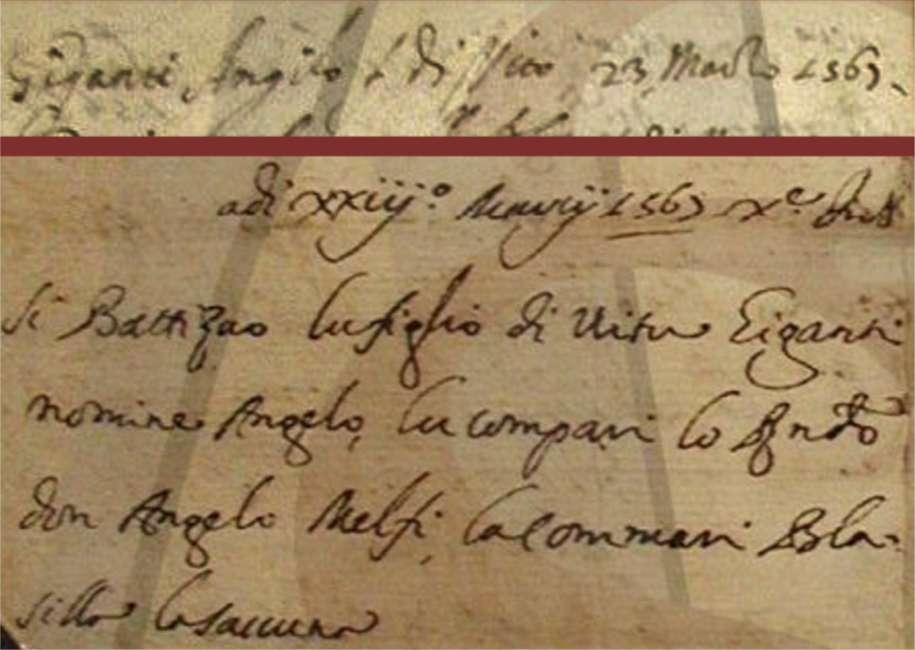 Giganti Angilo di Vito 23 Marzo 1563
adi xxiij° 1563
Si Battizao lu figlio di Vitu Giganti
nomine Angelo, lu compari lo
don Angelo Melfi, la Commari Bla-
silla